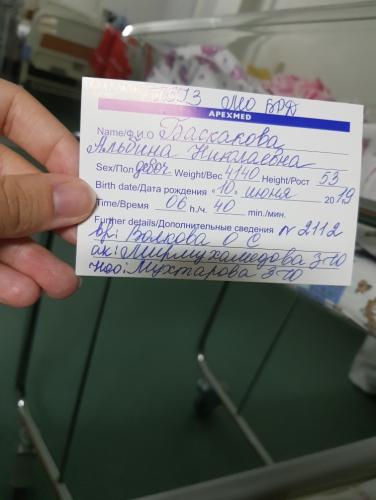 APEXMED
Name/Ф.И.О Баскакова
Альбина Николаевна
Sex/Пол девоч. Weight/Вес 4140 Height/Рост 53
Birth date/Дата рождения "10. июня 2019
Time/Время 06 h./ч. 40 min/мин.
Further details/Дополнительные сведения N 2112
вр: Волкова О С
ак: Мирмухамедова З-Ю
Мухтарова З-Ю